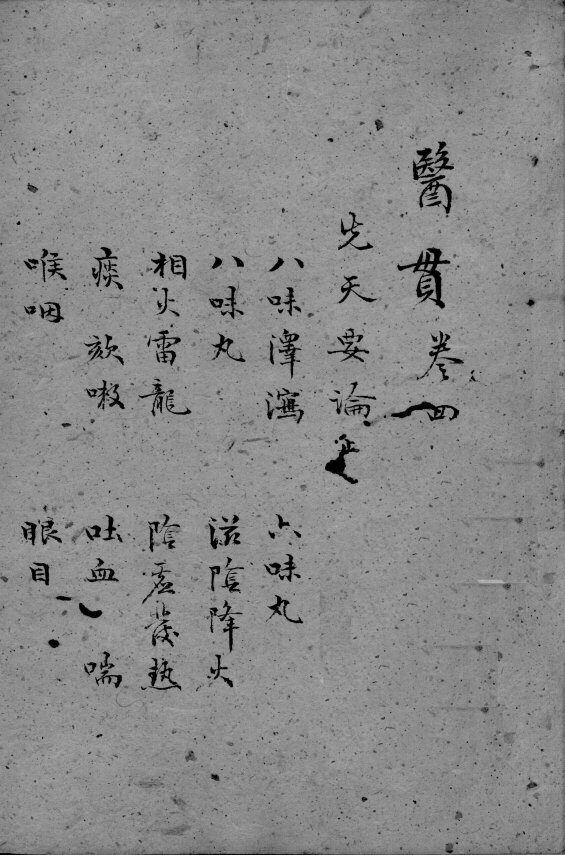 醫貫卷四
先天要論
八味澤瀉 六味丸
八味丸 滋陰降火
相火雷龍 陰虛發熱
痰 欬嗽 吐血 喘
喉咽 眼目